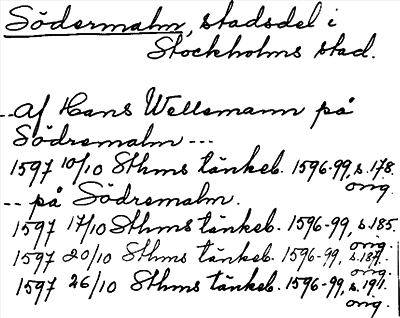 Södermalm, stadsdel i
Stockholms stad.
-- af Hans Wellemann på
Södremalm ---
1597 10/10 Sthms tänkeb. 1596-99, s. 178.
orig.
-- på Södremalm.
1597 17/10 Sthms tänkeb. 1596-99, s. 185.
orig.
1597 20/10 Sthms tänkeb. 1596-99, s. 187.
orig.
1597 26/10 Sthms tänkeb. 1596-99, s. 191.
orig.